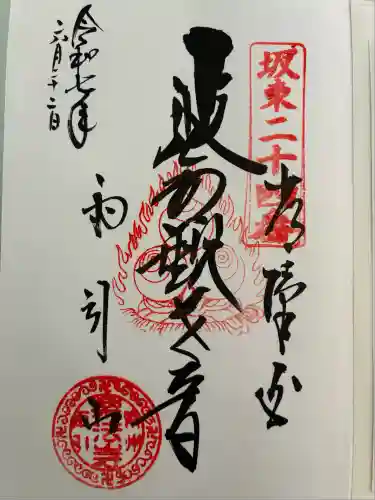 坂東二十四番
奉拝
延命観世音
雨引山
令和七年
六月二十二日